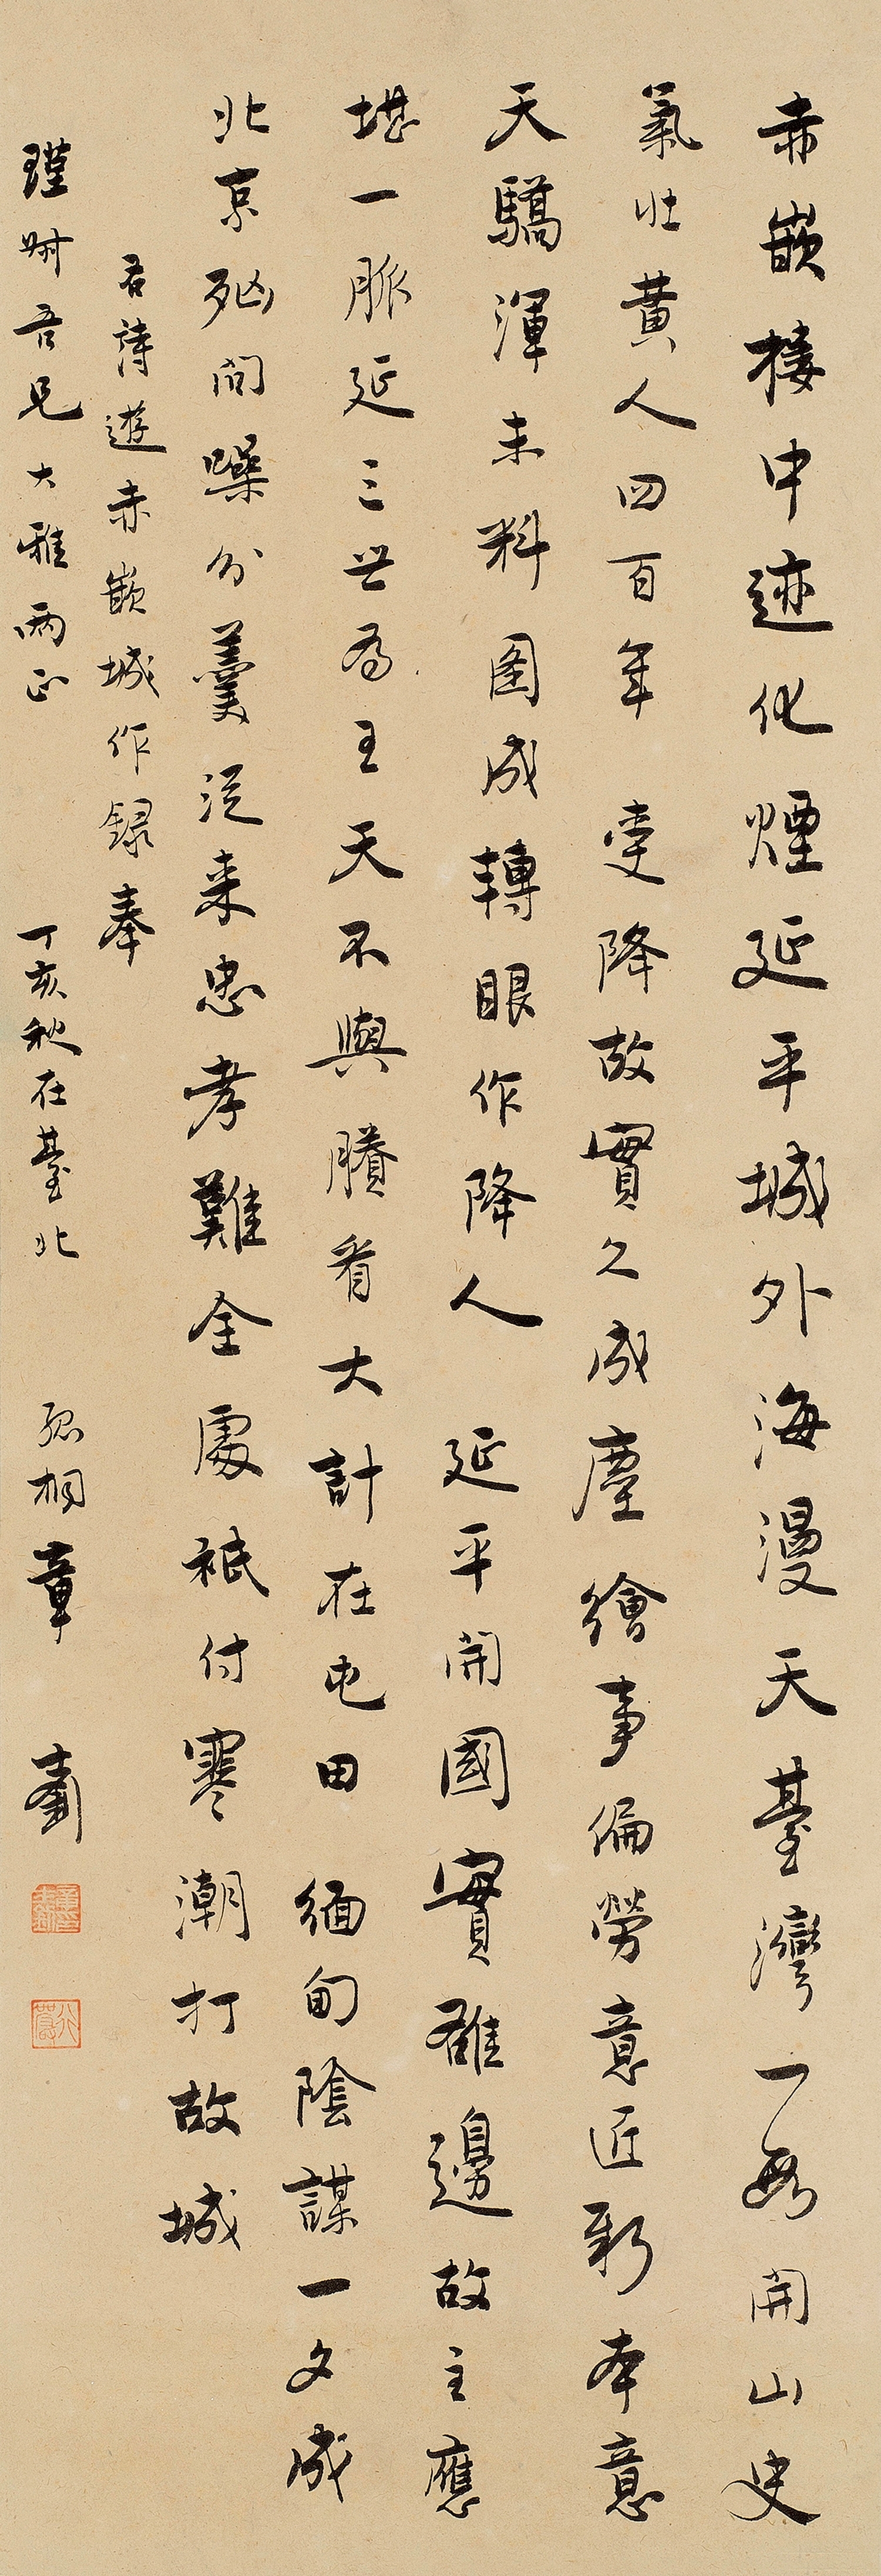 赤嵌接中迹化煙延平城外海漫天臺灣一段開山史
氣壯黃人四百年 受降故實久成塵繪事偏勞意匠新本意
天驕渾未料圖成轉眼作降人 延平開國實雄邊故主應
堪一脈延三世為王天不與賸看大計在屯田 緬甸陰謀一夕成
北京死問躁分羹從來忠孝難全處祇付寒潮打故城
右詩遊赤嵌城作錄奉
瑾尌吾兄大雅兩正
丁亥秋在臺北 孤桐章士釗